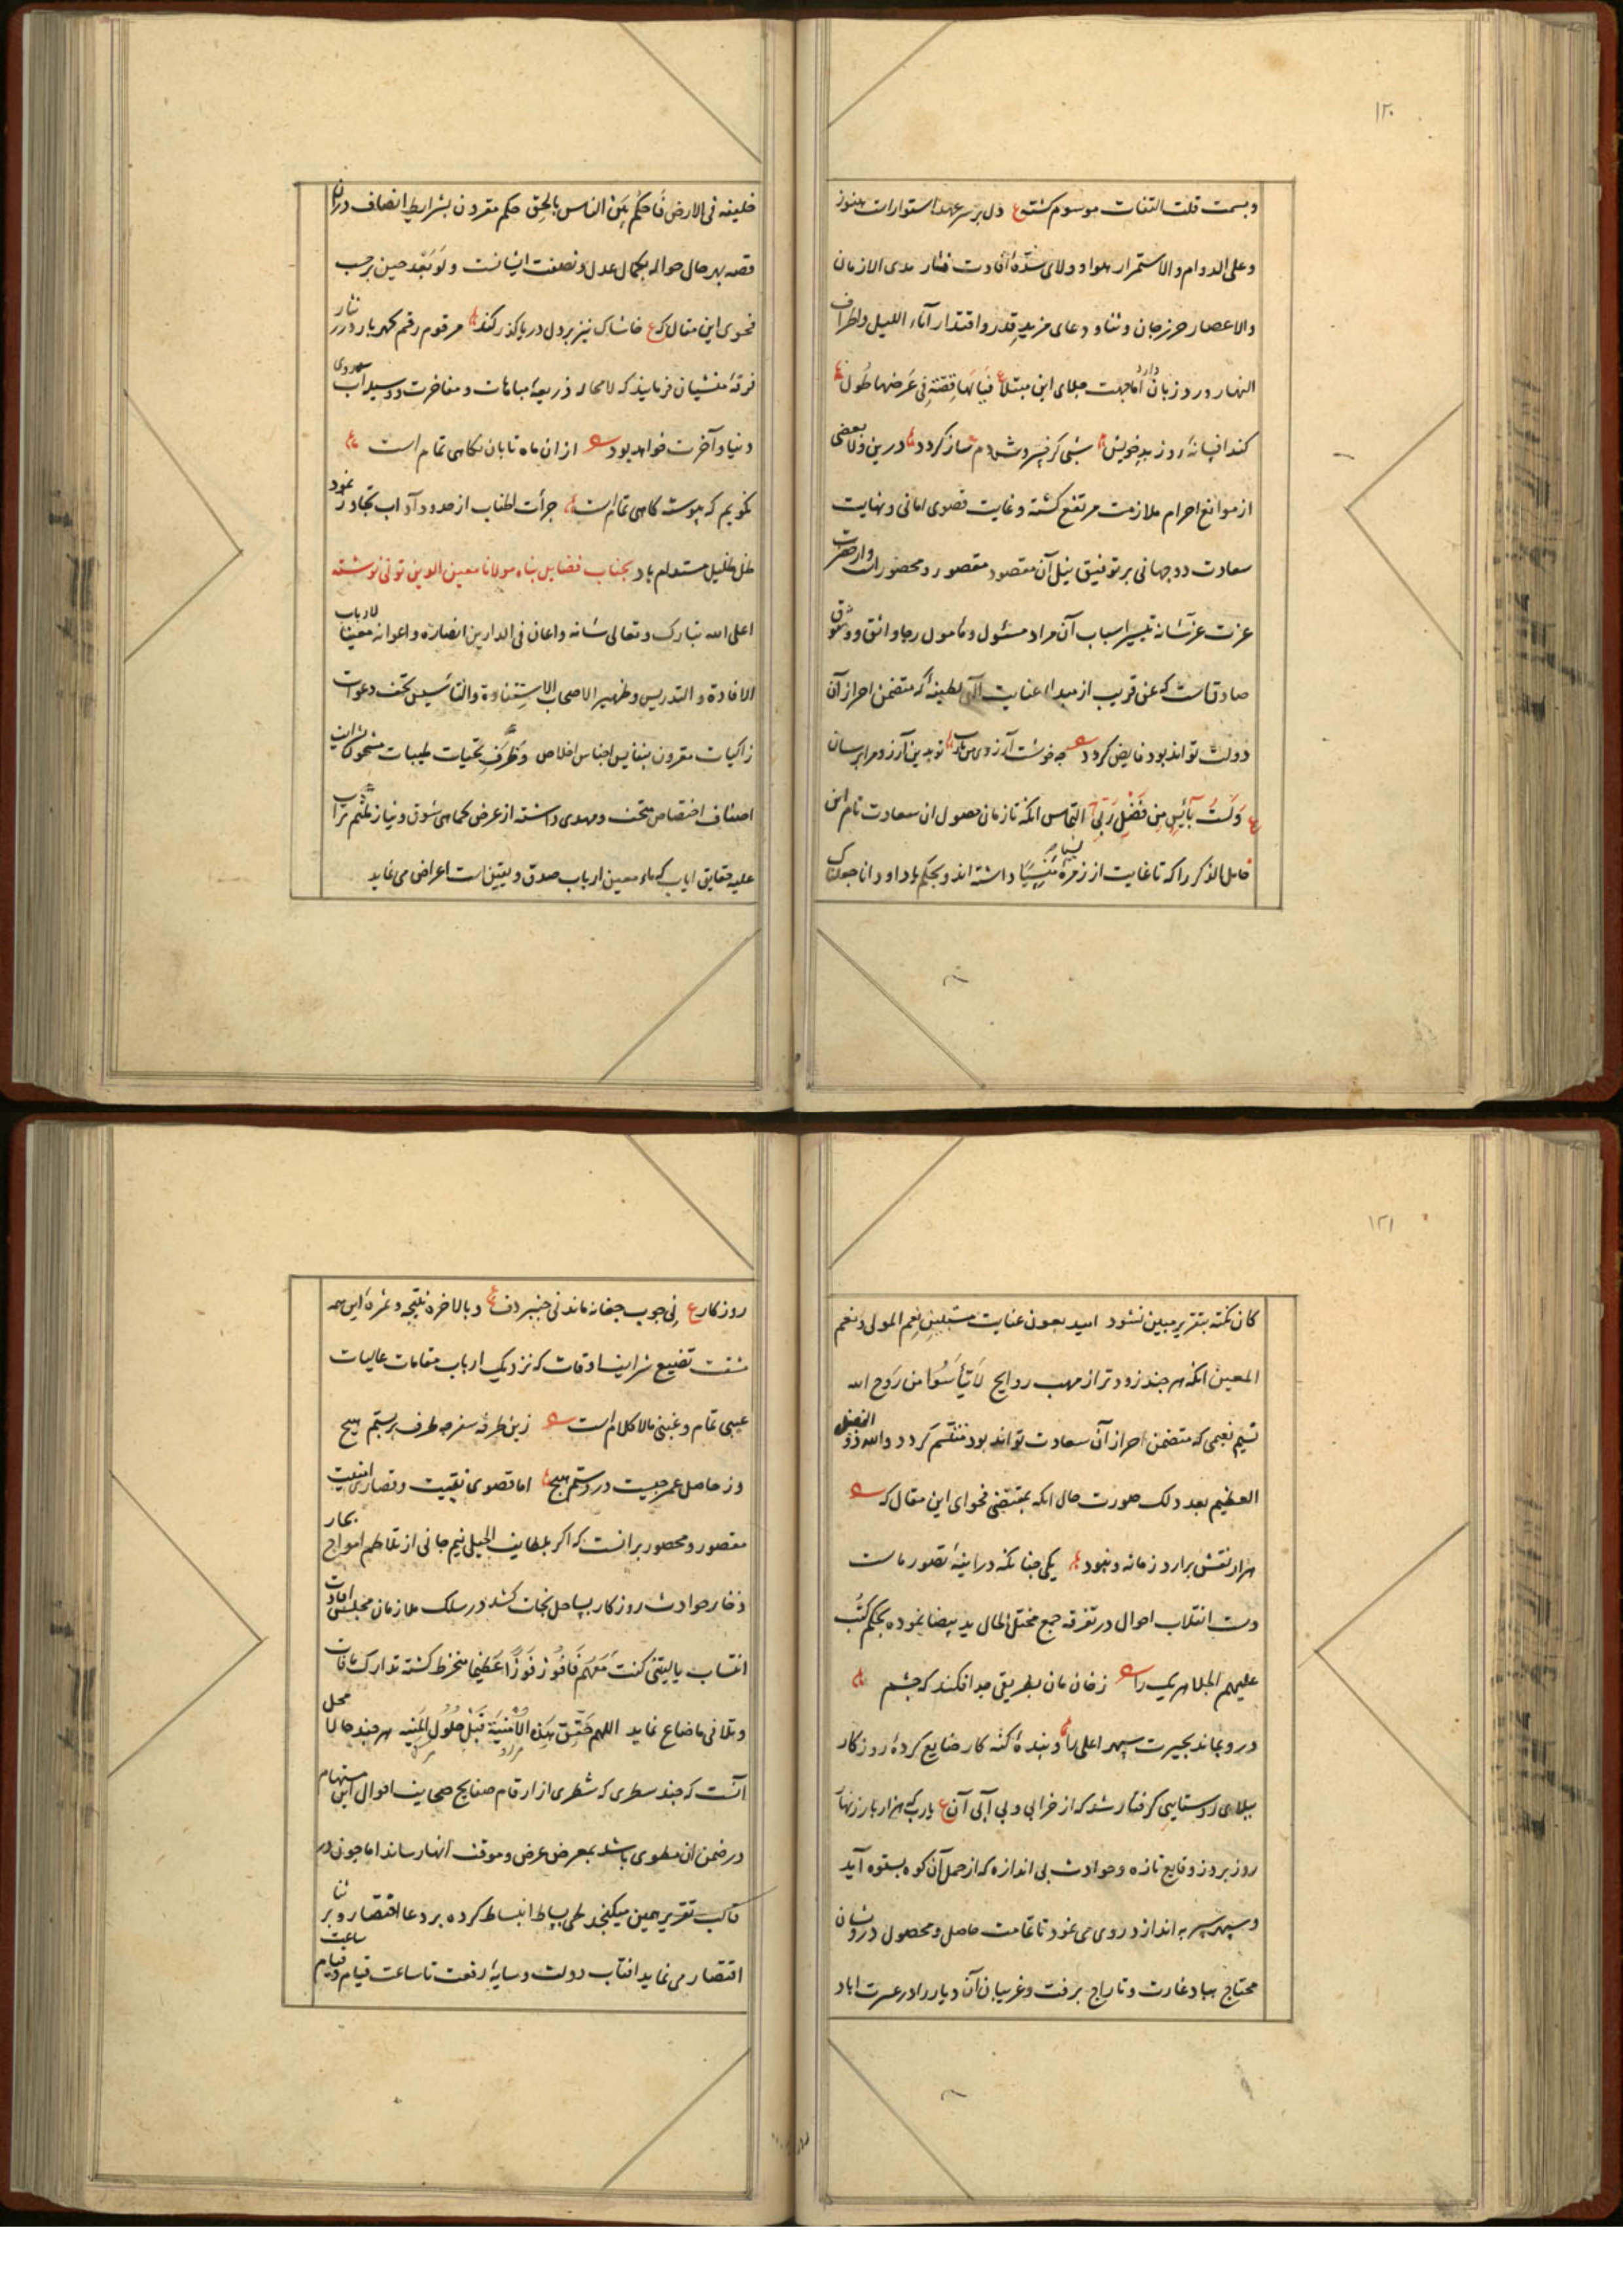 ۱۲۰
وبسمت قلت التفات موسوم کشته ع دل بر سر عهد استوارات هنوز
وعلی الدوام والاستمرار هوا وولای سده افادت مدی الازمان
والاعصار حرز جان وثنا ودعای مزید قدر واقتدار آناء اللیل واطراف
النهار ورد زبان دارد اما جهت ملای این مبتلا ع فیالها قصة فی عرضها طول
کند افسانهٔ روز بد خویش شبی کر درین ولا بعضی
از موانع احرام ملازمت مرتفع کشته وغایت قصوی امانی ونهایت
سعادت دوجهانی بر توفیق نیل آن مقصود مقصور ومحصور از حضرت
عزت عز شانه تیسیر اسباب آن مراد مسئول ومامول رجا واثق ووثوق
صادق است که عن قریب از مبدا عنایت الهی لطیفهٔ که متضمن احراز آن
دولت تواند بود فایض کردد چه خوشست آرزوی من یارب تو بدین آرزو مرا برسان
ع ولست بآئس من فضل ربی التماس انکه تا زمان حصول ان سعادت نام این
خامل الذکر را که تا غایت از زمرهٔ نسیا منسیا داشته اند وبحکم یا داود انا جعلناک
خلیفه فی الارض فاحکم بین الناس بالحق حکم مقرون بشرایط انصاف دران
قصه بهر حال حواله بکمال عدل ونصفت ایشانست ولو بعد حین برحسب
فحوی این مقال که ع خاشاک نیز بر دل دریا کذر کند مرقوم رقم کهربار درر نثار
فرقهٔ منشیان فرمایند که لامحاله ذریعهٔ مباهات ومفاخرت ووسیله آب روی
دنیا وآخرت خواهد بود از ان ماه تابان نکاهی تمام است
نکویم که پیوسته کاهی تمام است جرأت اطناب از حدود آداب تجاوز نمود
ظل ظلیل مستدام باد بجناب فضایل پناه مولانا معین الدین تونی نوشته
اعلی الله تبارک وتعالی شانه واعان فی الدارین انصاره واعوانه معینا لارباب
الافادة والتدریس وظهیر الاصحاب الاستفادة والتاسیس تحف دعوات
زاکیات مقرون بنفایس اجناس اخلاص وظرف تحیات طیبات مشحون
اصناف اختصاص متحف ومهدی داشته از عرض کماهی شوق ونیاز بلثم تراب
علیه حقایق ایاب که ماء معین ارباب صدق ویقین است اعراض می نماید
۱۲۱
کان نکته بتقریر مبین نشود امید بعون عنایت نعم المولی ونعم
المعین انکه هر چند زودتر از مهب روایح لا تیأسوا من روح الله
نسیم نعیمی که متضمن احراز آن سعادت تواند بود متنسم کردد والله ذو الفضل
العظیم بعد ذلک صورت حال انکه بمقتضی فحوای این مقال که
هزار نقش برارد زمانه ونبود یکی چنانکه در آینهٔ تصور ماست
دست انقلاب احوال در تفرقه جمع مختل الحال ید بیضا نموده بحکم کتب
علیهم الجلا هر یک را ز خان مان بطریقی جدا فکند که چشم
درو بماند بحیرت سپهر اعلی را وبندهٔ کنه کار ضایع کردهٔ روزکار
ببلای روستایی کرفتار شد که از خرابی وبی آبی آن ع یارب که هزار بار زنهار
روز بروز وقایع تازه وحوادث بی اندازه که از حمل آن کوه بستوه آید
وسپهر سپر بیندازد روی می نمود تا عاقبت حاصل ومحصول درویشان
محتاج بباد غارت وتاراج برفت وغریبان آن دیار را در عسرت اباد
روزکار ع نی چوب جغانه ماند نی چنبر دف وبالاخره نتیجه وثمرهٔ این همه
مشقت تضییع شرایف اوقات که نزدیک ارباب مقامات عالیات
عیبی تمام وغبنی مالا کلام است زین طرفه سفر چه طرف بربستم هیچ
وز حاصل عمر چیست در دستم هیچ اما قصوی بغیت وقصاری امنیت
مقصور ومحصور برانست که اکر بلطایف الحیل نیم جانی از تلاطم امواج بحار
ذخار حوادث روزکار بساحل نجات کشد در سلک ملازمان مجلس افادت
انتساب یا لیتنی کنت معهم فافوز فوزا عظیما منخرط کشته تدارک مافات
وتلافی ماضاع نماید اللهم حقق هذه الامنیة قبل حلول المنیه هر چند حالا محل
آنست که چند سطری که شطری از ارقام صفایح صحایف احوال این مستهام
در ضمن ان مطوی باشد بمعرض عرض وموقف انهار ساند اما چون در
قالب تقریر همین میکنجد طی بساط انبساط کرده بر دعا اقتصار وبر ثنا
اقتصار می نماید افتاب دولت وسایهٔ رفعت تا ساعت قیام وقیام ساعت